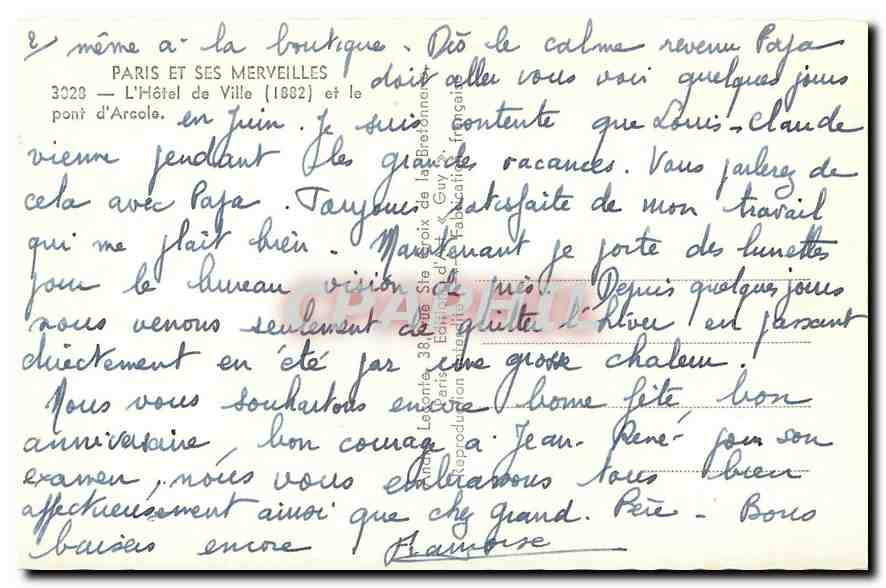 2/ même à la boutique. Dès le calme revenu Papa
PARIS ET SES MERVEILLES
doit aller vous voir quelques jours
3028 — L'Hôtel de Ville (1882) et le
pont d'Arcole.
en Juin. Je suis contente que Louis-Claude
vienne pendant les grandes vacances. Vous parlerez de
cela avec Papa. Toujours satisfaite de mon travail
qui me plait bien. Maintenant je porte des lunettes
pour le bureau vision de près. Depuis quelques jours
nous venons seulement de quitter l'hiver en passant
directement en été par une grosse chaleur.
Nous vous souhaitons encore bonne fête, bon
anniversaire, bon courage à Jean-René pour son
examen, nous vous embrassons tous bien
affectueusement ainsi que cher Grand. Père - Bons
baisers encore Françoise
André Leconte, 38, rue Ste Croix de la Bretonnerie
Paris - Editions d'Art « Guy »
Reproduction interdite - Fabrication française
CPAPHIL